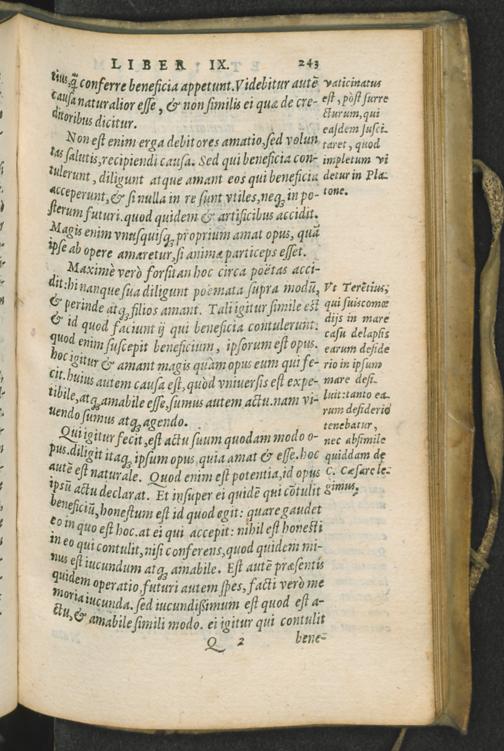 LIBER IX. 243
tius,q̃ conferre beneficia appetunt. Videbitur autẽ
causa naturalior esse, & non similis ei quæ de cre-
ditoribus dicitur.
Non est enim erga debitores amatio, sed volun
tas salutis, recipiendi causa. Sed qui beneficia con-
tulerunt, diligunt atque amant eos qui beneficia
acceperunt, & si nulla in re sunt vtiles, neq; in po-
sterum futuri. quod quidem & artificibus accidit.
Magis enim vnusquisq; proprium amat opus, quã
ipse ab opere amaretur, si animæ particeps esset.
Maximè verò forsitan hoc circa poëtas acci-
dit: hi nanque sua diligunt poëmata supra modũ,
& perinde atq; filios amant. Tali igitur simile est
& id quod faciunt ij qui beneficia contulerunt:
quod enim suscepit beneficium, ipsorum est opus.
hoc igitur & amant magis quàm opus eum qui fe-
cit. huius autem causa est, quòd vniuersis est expe-
tibile, atq; amabile esse, sumus autem actu. nam vi-
uendo sumus atq; agendo.
Qui igitur fecit, est actu suum quodam modo o-
pus. diligit itaq; ipsum opus, quia amat & esse. hoc
autẽ est naturale. Quod enim est potentia, id opus
ipsũ actu declarat. Et insuper ei quidẽ qui cõtulit
beneficiũ, honestum est id quod egit: quare gaudet
eo in quo est hoc. at ei qui accepit: nihil est honesti
in eo qui contulit, nisi conferens, quod quidem mi-
nus est iucundum atq; amabile. Est autẽ præsentis
quidem operatio, futuri autem spes, facti verò me
moria iucunda. sed iucundissimum est quod est a-
ctu, & amabile simili modo. ei igitur qui contulit
Q 2 bene-
vaticinatus
est, pòst surre
cturum, qui
easdem susci-
taret, quod
impletum vi
detur in Pla-
tone.
Vt Terẽtius,
qui suis comœ
dijs in mare
casu delapsis
earum deside
rio in ipsum
mare desi-
luit: tanto ea-
rum desiderio
tenebatur,
nec absimile
quiddam de
C. Cæsare le-
gimus,